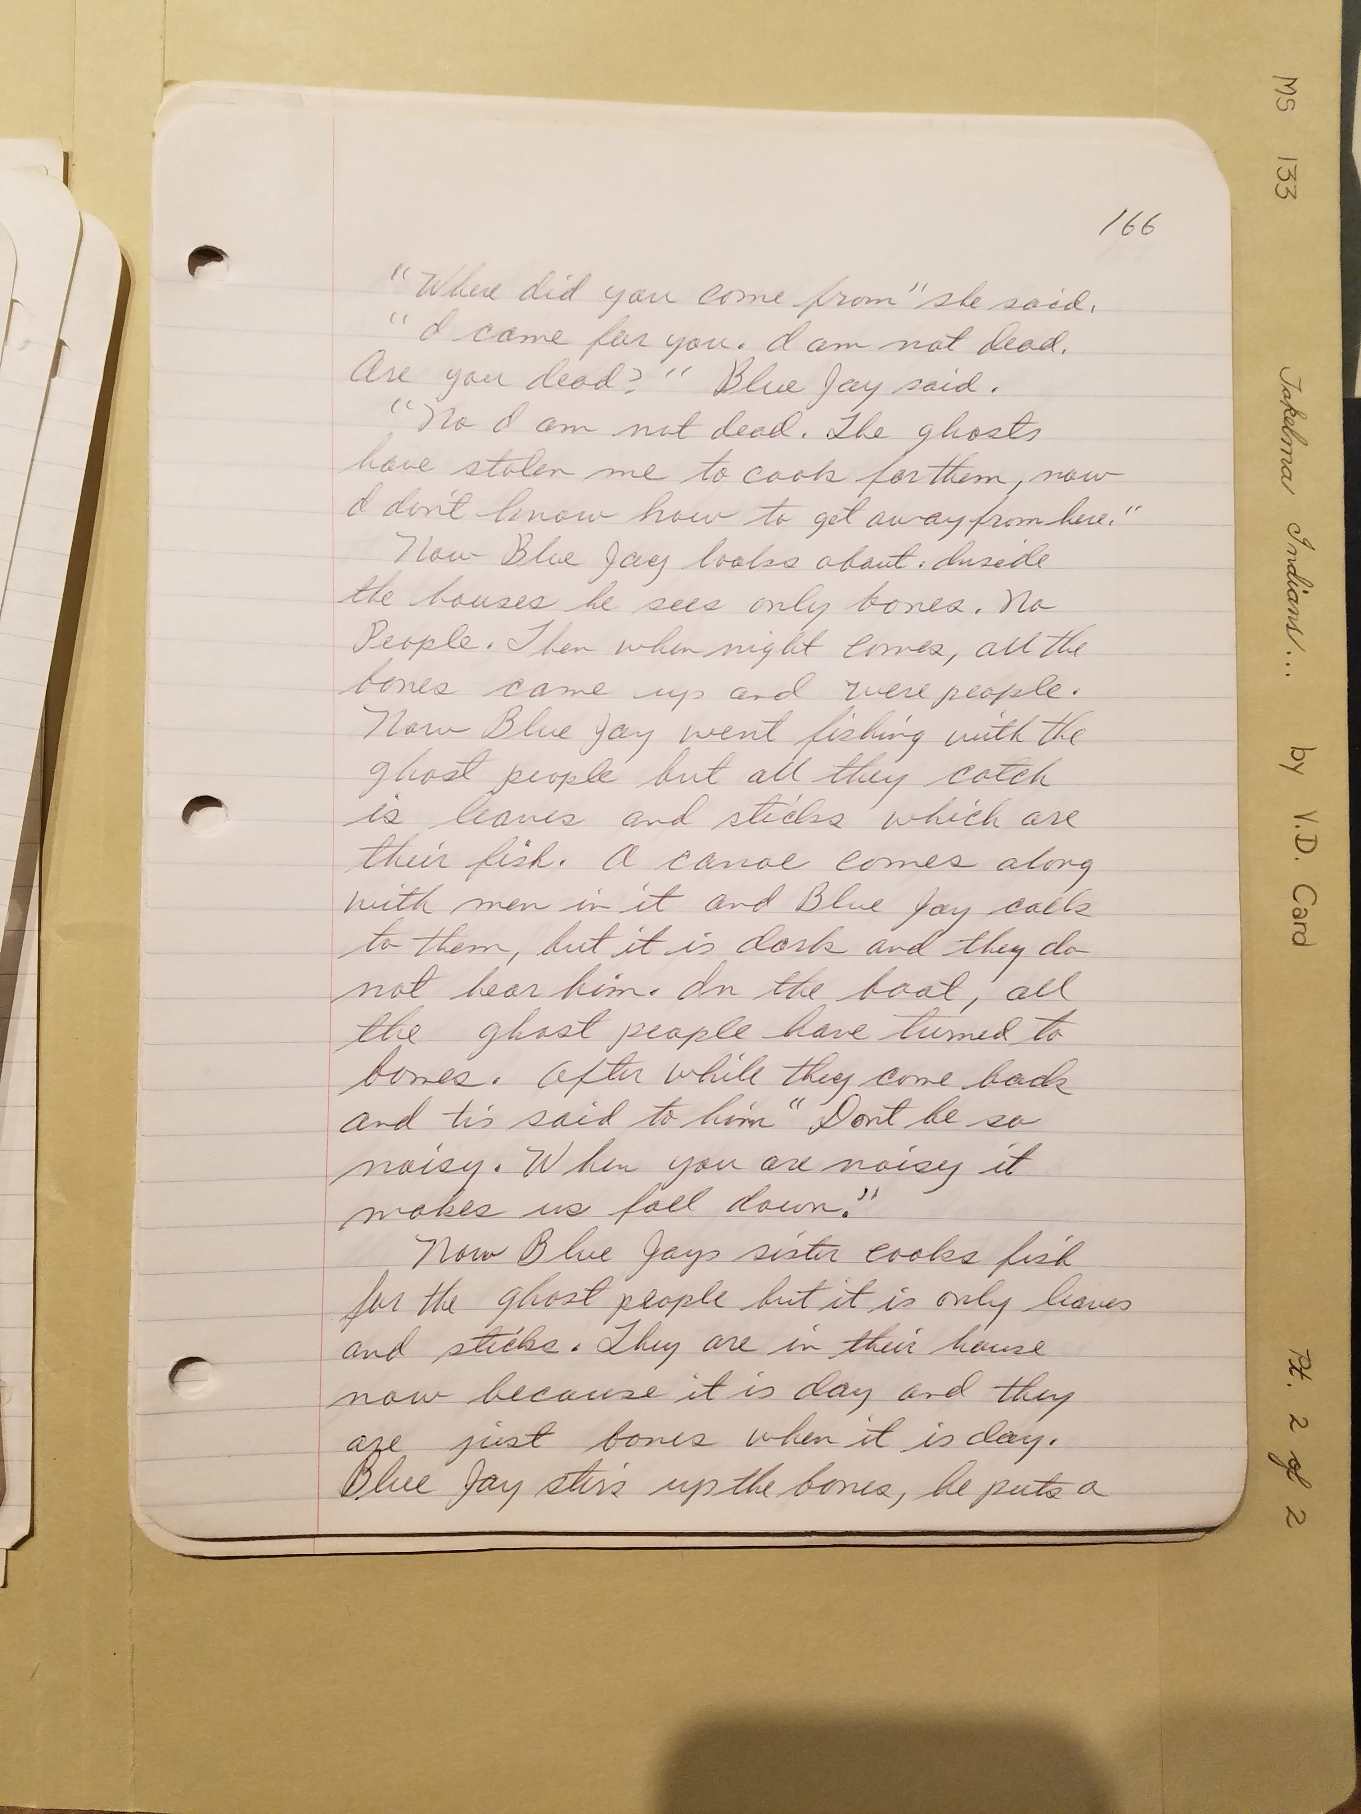 166
"Where did you come from" she said.
"I came for you. I am not dead.
Are you dead?" Blue Jay said.
"No I am not dead. The ghosts
have stolen me to cook for them, now
I don't know how to get away from here."
Now Blue Jay looks about. Inside
the houses he sees only bones. No
People. Then when night comes, all the
bones came up and were people.
Now Blue Jay went fishing with the
ghost people but all they catch
is leaves and sticks which are
their fish. A canoe comes along
with men in it and Blue Jay calls
to them, but it is dark and they do
not hear him. In the boat, all
the ghost people have turned to
bones. After while they come back
and tis said to him "Dont be so
noisy. When you are noisy it
makes us fall down."
Now Blue Jays sister cooks fish
for the ghost people but it is only leaves
and sticks. They are in their house
now because it is day and they
are just bones when it is day.
Blue Jay stirs up the bones, he puts a
MS 133 Takelma Indians... by V.D. Card Pt. 2 of 2